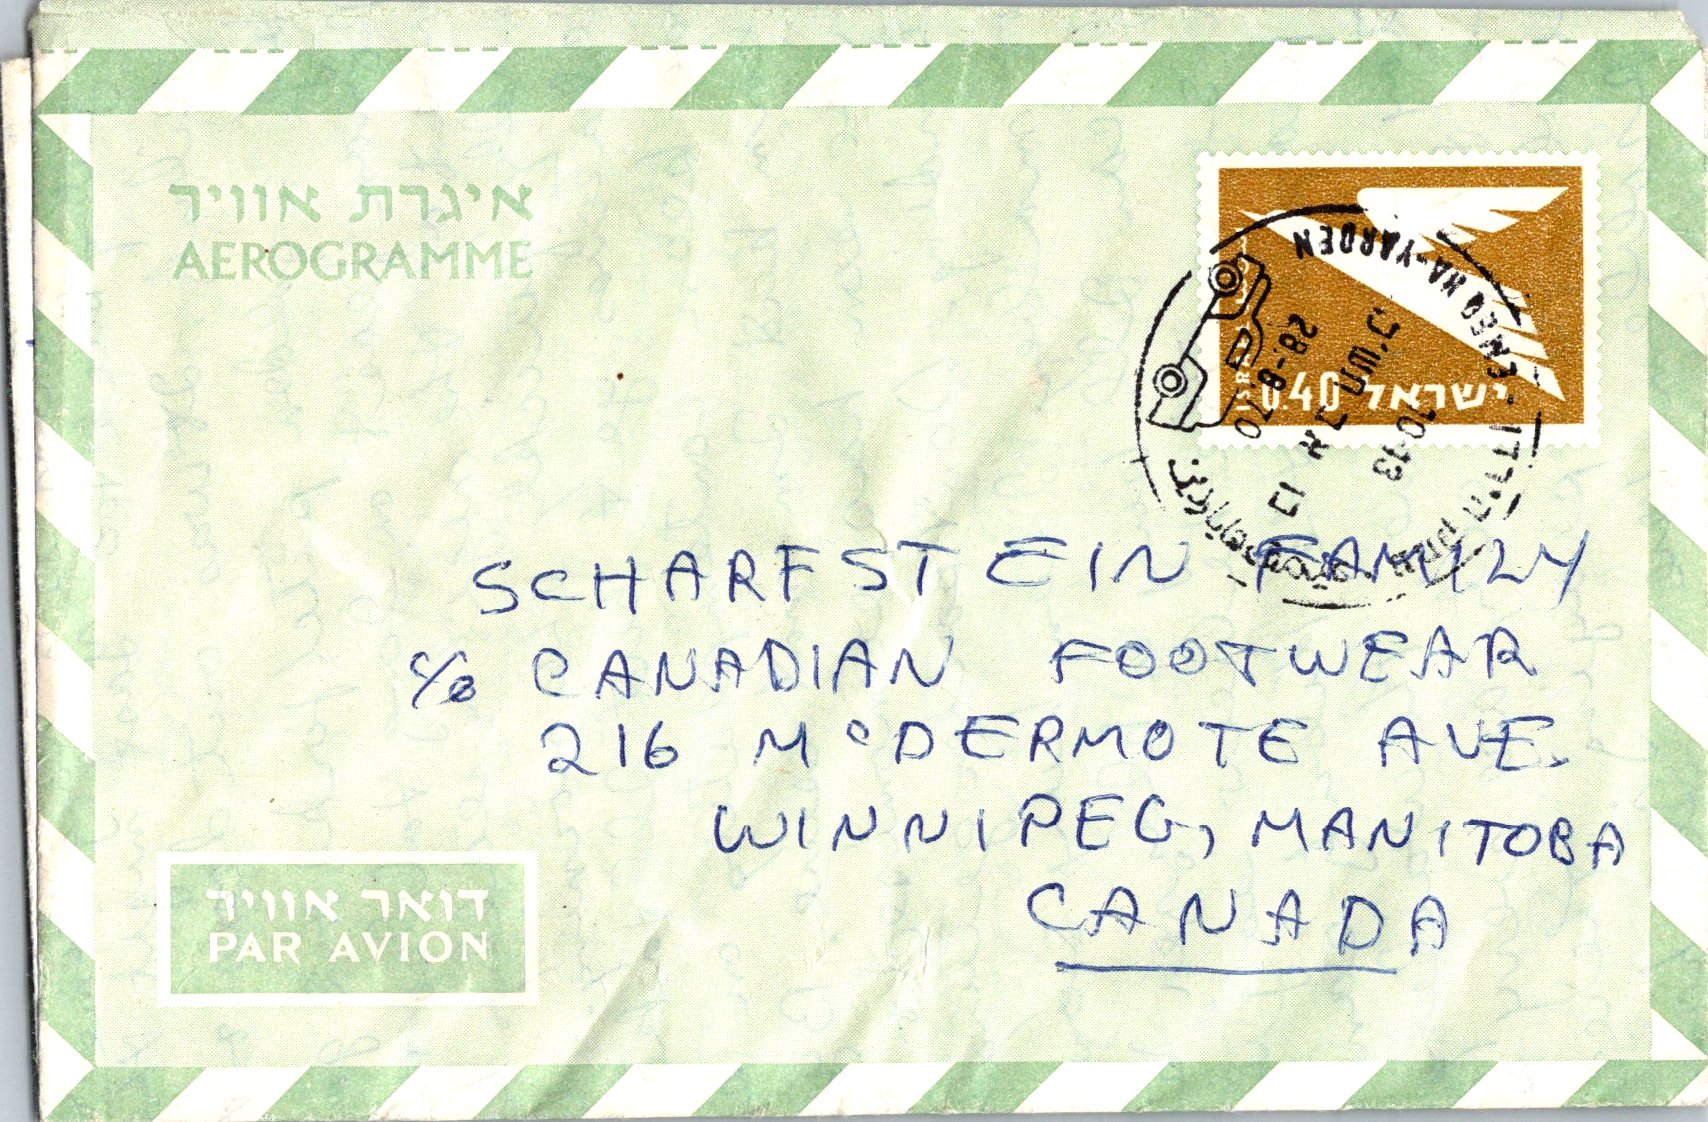 איגרת אוויר
AEROGRAMME
ISR
0.40 ישראל
EMEQ HA-YARDEN
עמק הירדן
28-8-70
10-13
SCHARFSTEIN FAMILY
c/o CANADIAN FOOTWEAR
216 McDERMOTE AVE.
WINNIPEG, MANITOBA
CANADA
דואר אוויר
PAR AVION